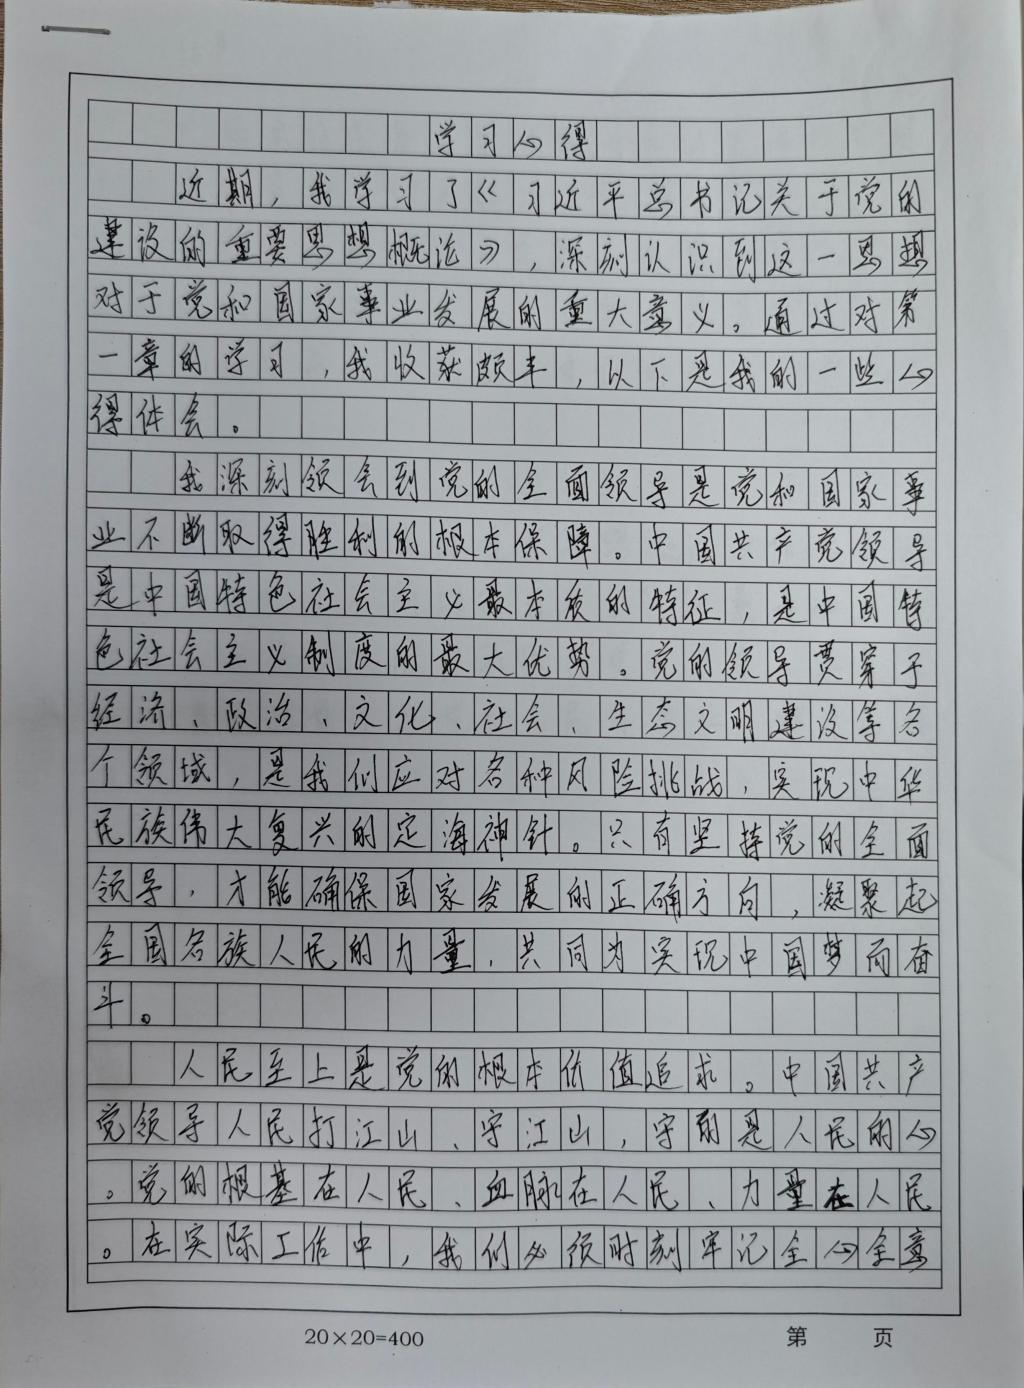 学习心得
近期，我学习了《习近平总书记关于党的
建设的重要思想概论》，深刻认识到这一思想
对于党和国家事业发展的重大意义。通过对第
一章的学习，我收获颇丰，以下是我的一些心
得体会。
我深刻领会到党的全面领导是党和国家事
业不断取得胜利的根本保障。中国共产党领导
是中国特色社会主义最本质的特征，是中国特
色社会主义制度的最大优势。党的领导贯穿于
经济、政治、文化、社会、生态文明建设等各
个领域，是我们应对各种风险挑战，实现中华
民族伟大复兴的定海神针。只有坚持党的全面
领导，才能确保国家发展的正确方向，凝聚起
全国各族人民的力量，共同为实现中国梦而奋
斗。
人民至上是党的根本价值追求。中国共产
党领导人民打江山、守江山，守的是人民的心
。党的根基在人民、血脉在人民、力量在人民
。在实际工作中，我们必须时刻牢记全心全意
20×20=400
第 页